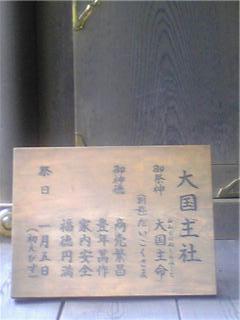 大国主社
御祭神
大国主命
おおくにぬしのみこと
(別名)だいこくさま
御神徳
商売繁昌
豊年満作
家内安全
福徳円満
祭日
一月五日
(初えびす)